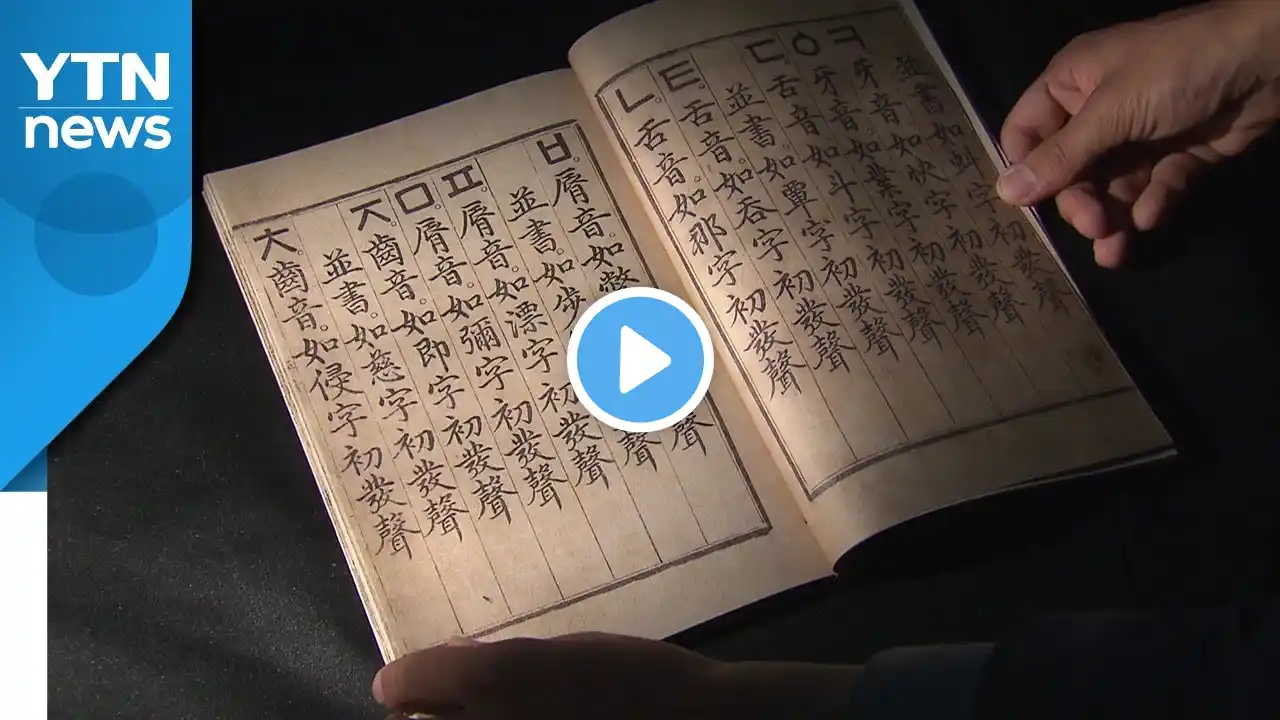 YTN
news
並書如虯字初發聲
ㅋ牙音如快字初發聲
ㆁ牙音如業字初發聲
ㄷ舌音如斗字初發聲
並書。如覃字初發聲
ㅌ。舌音。如呑字初發聲
ㄴ。舌音。如那字初發聲
ㅂ。脣音。如彆聲
並書。如步聲
ㅍ。脣音。如漂字初發聲
ㅁ。脣音。如彌字初發聲
ㅈ。齒音。如即字初發聲
並書。如慈字初發聲
ㅊ。齒音。如侵字初發聲